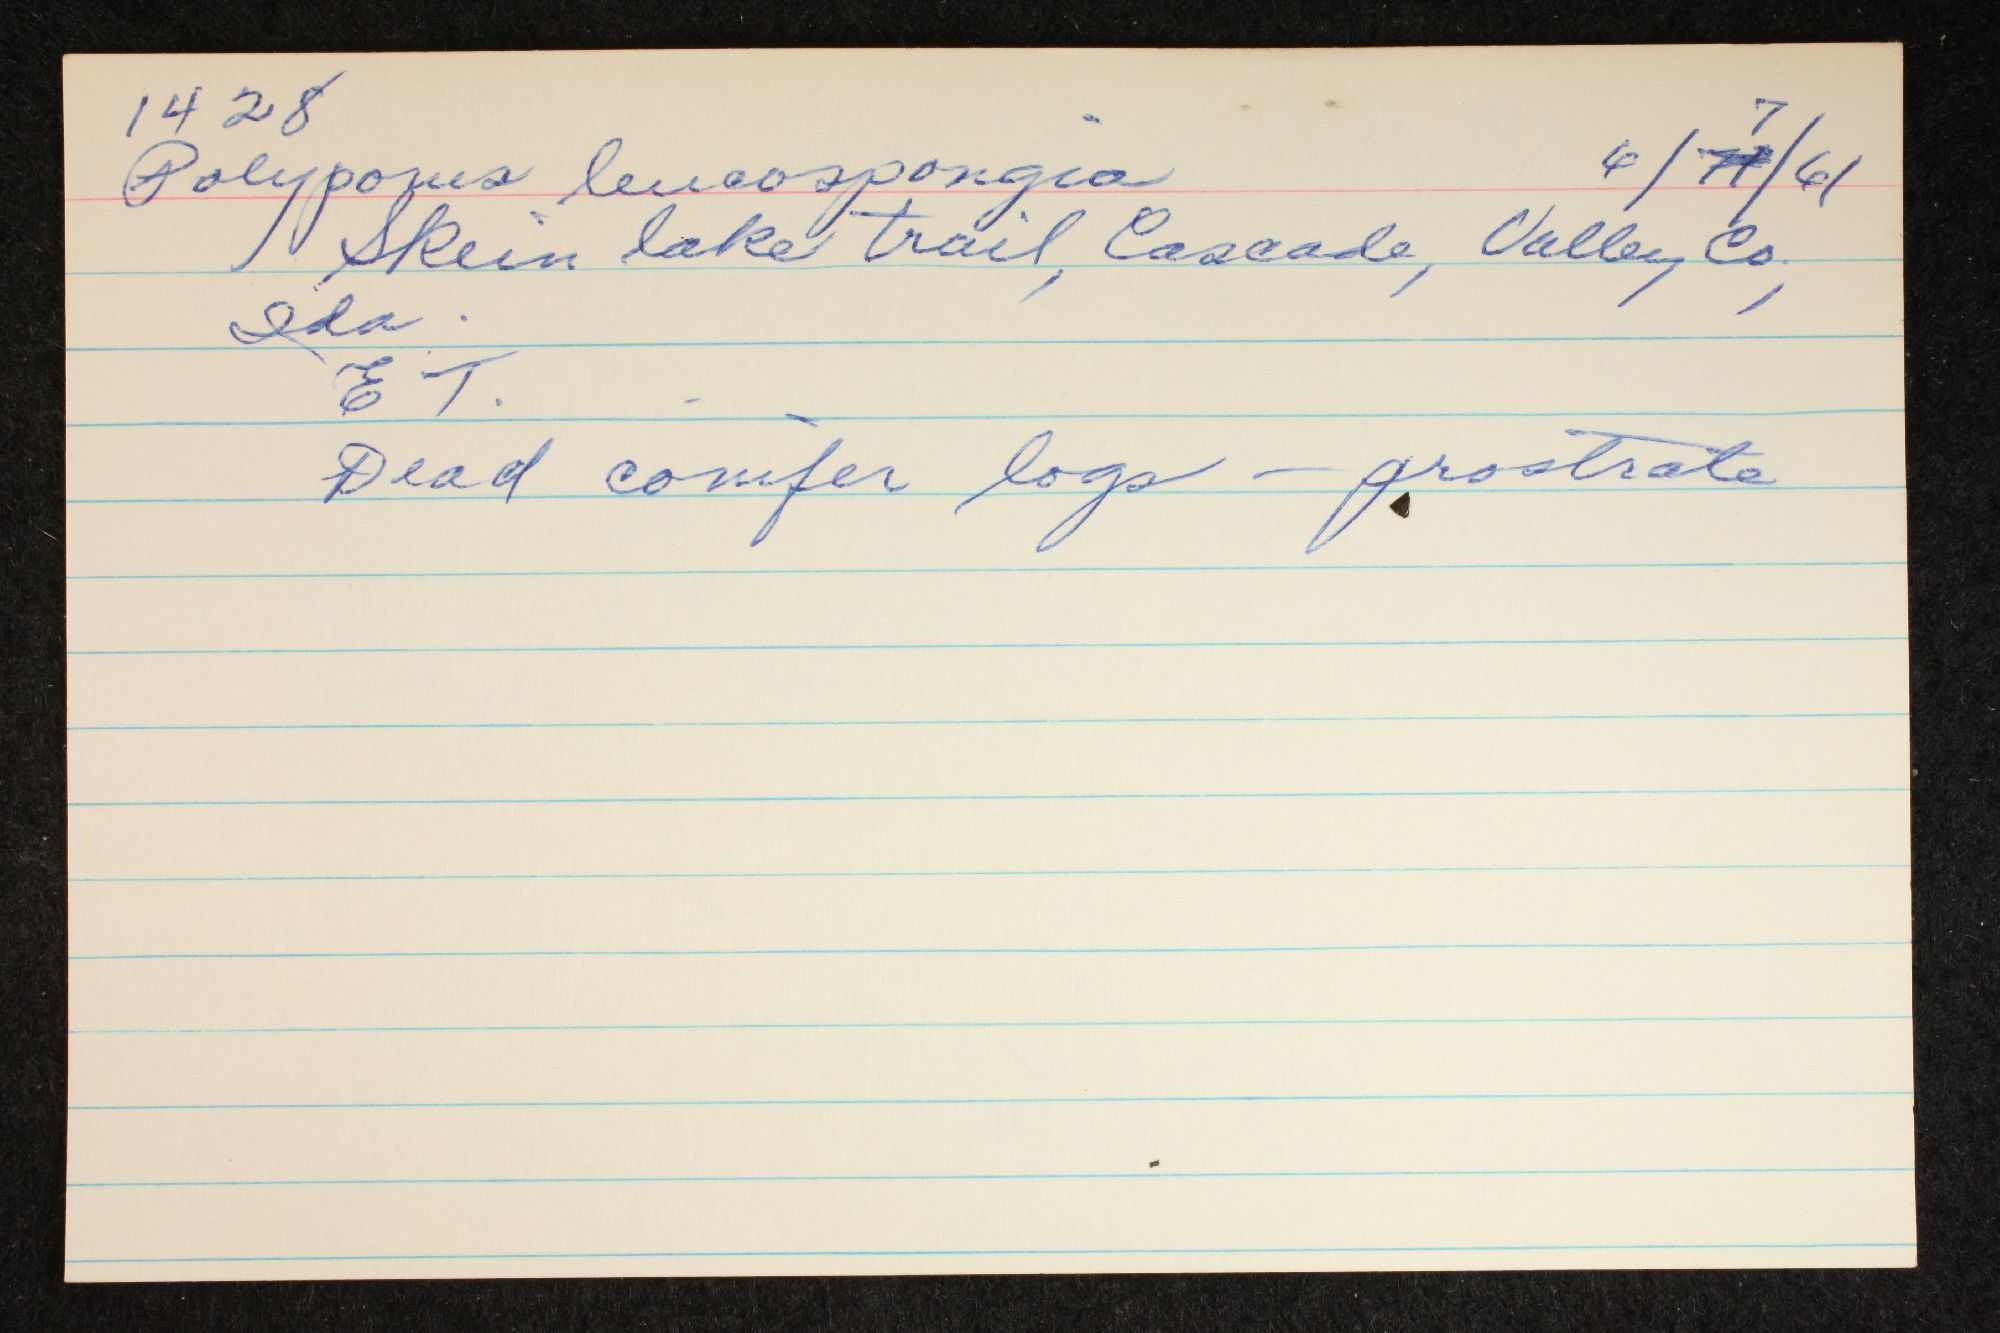 1428
Polyporus leucospongia 6/7/61
Skein lake trail, Cascade, Valley Co.,
Ida.
E T.
Dead conifer logs - prostrate